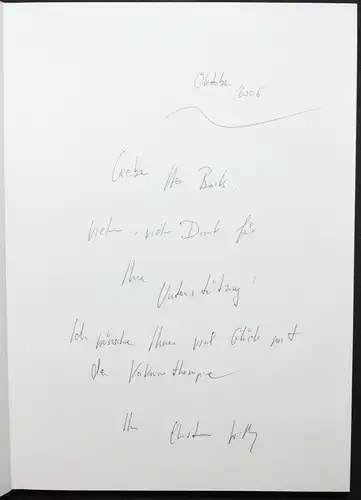 Oktober
2006
Lieber Herr Bark,
vielen, vielen Dank für
Ihre
Unterstützung!
Ich wünsche Ihnen viel Glück mit
der Vakuumtherapie
Ihr Christian Willy